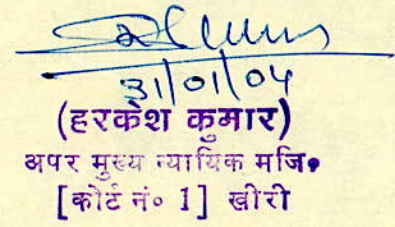 31/01/04
(हरकेश कुमार)
अपर मुख्य न्यायिक मजि०
[कोर्ट नं० 1] खीरी